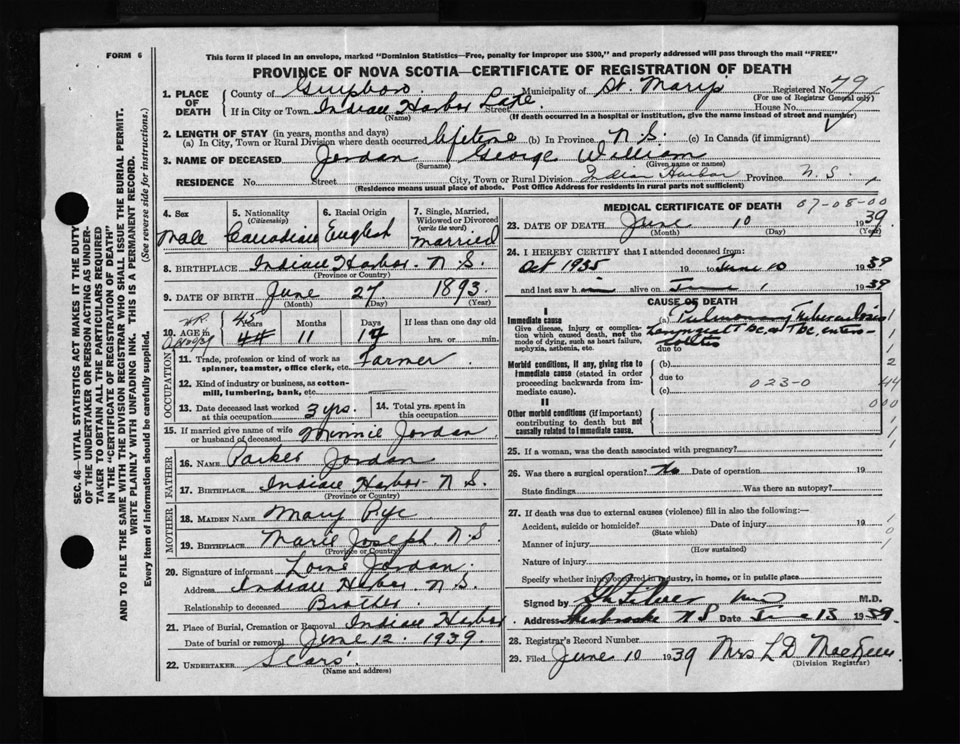 FORM 6
This form if placed in an envelope, marked "Dominion Statistics—Free, penalty for improper use $300," and properly addressed will pass through the mail "FREE"
PROVINCE OF NOVA SCOTIA—CERTIFICATE OF REGISTRATION OF DEATH
SEC. 46— VITAL STATISTICS ACT MAKES IT THE DUTY
OF THE UNDERTAKER OR PERSON ACTING AS UNDER-
TAKER TO OBTAIN ALL THE PARTICULARS REQUIRED
IN THE "CERTIFICATE OF REGISTRATION OF DEATH"
AND TO FILE THE SAME WITH THE DIVISION REGISTRAR WHO SHALL ISSUE THE BURIAL PERMIT.
WRITE PLAINLY WITH UNFADING INK. THIS IS A PERMANENT RECORD.
Every item of information should be carefully supplied. (See reverse side for instructions.)
1. PLACE OF DEATH County of Guysboro Municipality of St. Marys Registered No. 79
(For use of Registrar General only)
If in City or Town Indian Harbor Lake Street House No.
(Name) (If death occurred in a hospital or institution, give the name instead of street and number)
2. LENGTH OF STAY (in years, months and days)
(a) In City, Town or Rural Division where death occurred lifetime (b) In Province N.S. (c) In Canada (if immigrant)
3. NAME OF DECEASED Jordan George William
(Surname) (Given name or names)
RESIDENCE No. Street City, Town or Rural Division Indian Harbor Province N.S.
(Residence means usual place of abode. Post Office Address for residents in rural parts not sufficient)
4. Sex Male
5. Nationality (Citizenship) Canadian
6. Racial Origin English
7. Single, Married, Widowed or Divorced (write the word) Married
8. BIRTHPLACE Indian Harbor N.S.
(Province or Country)
9. DATE OF BIRTH June 27 1893
(Month) (Day) (Year)
10. AGE in
45 44 Years 11 Months 14 Days If less than one day old
hrs. or min.
OCCUPATION
11. Trade, profession or kind of work as spinner, teamster, office clerk, etc. Farmer
12. Kind of industry or business, as cotton-mill, lumbering, bank, etc.
13. Date deceased last worked at this occupation 3 yrs.
14. Total yrs. spent in this occupation
15. If married give name of wife or husband of deceased Minnie Jordan
FATHER
16. NAME Parker Jordan
17. BIRTHPLACE Indian Harbor N.S.
(Province or Country)
MOTHER
18. MAIDEN NAME Mary Pye
19. BIRTHPLACE Marie Joseph N.S
(Province or Country)
20. Signature of informant Jordan
Address Indian Harbor N.S.
Relationship to deceased Brother
21. Place of Burial, Cremation or Removal Indian Harbor
Date of burial or removal June 12. 1939
22. UNDERTAKER Sears'
(Name and address)
MEDICAL CERTIFICATE OF DEATH 07-08-00
23. DATE OF DEATH June 10 1939
(Month) (Day) (Year)
24. I HEREBY CERTIFY that I attended deceased from:
Oct 1935 19 to June 10 1939
and last saw h im alive on June 1 1939
CAUSE OF DEATH
I
Immediate cause
Give disease, injury or complication which caused death, not the mode of dying, such as heart failure, asphyxia, asthenia, etc.
(a) Pulmonary Tuberculosis
Laryngeal TBC, TBC. entero-
colitis
due to
Morbid conditions, if any, giving rise to immediate cause (stated in order proceeding backwards from immediate cause).
(b)
due to
(c) 023-0
II
Other morbid conditions (if important) contributing to death but not causally related to immediate cause.
1
1
1
2
44
000
1
1
25. If a woman, was the death associated with pregnancy?
26. Was there a surgical operation? No Date of operation 19
State findings Was there an autopsy?
27. If death was due to external causes (violence) fill in also the following:—
Accident, suicide or homicide? Date of injury 19
(State which)
Manner of injury
(How sustained)
Nature of injury
Specify whether injury occurred in industry, in home, or in public place
1
0
1
Signed by M.D.
Address Sherbrooke N S Date June 13 1939
28. Registrar's Record Number
29. Filed June 10 1939 Mrs L D MacKeen
(Division Registrar)